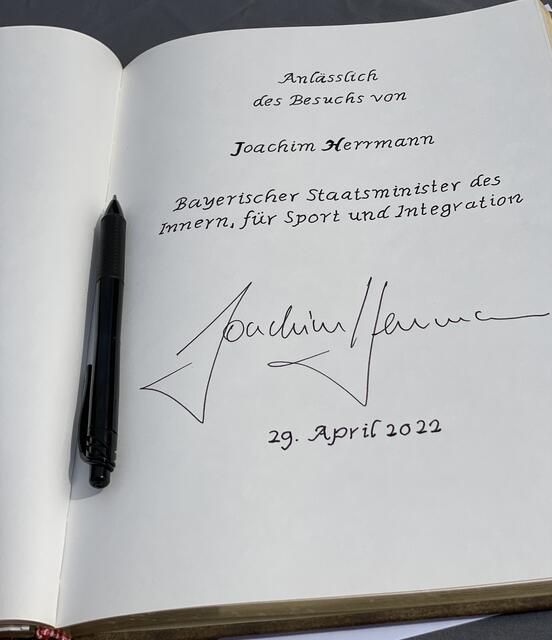 Anlässlich
des Besuchs von
Joachim Herrmann
Bayerischer Staatsminister des
Innern, für Sport und Integration
Joachim Herrmann
29. April 2022